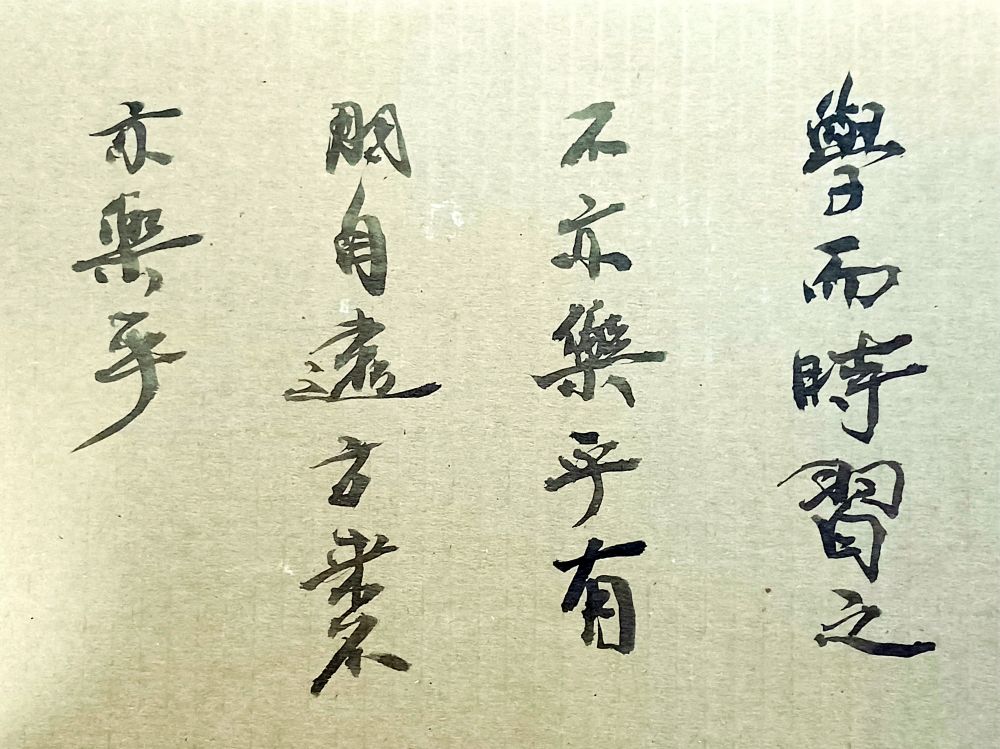 學而時習之
不亦樂乎有
朋自遠方來不
亦樂乎